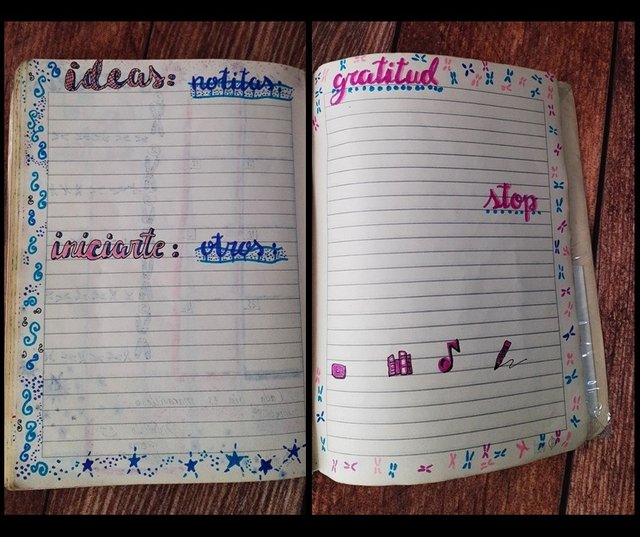 ideas: notitas:
iniciarte: otros:
gratitud
stop